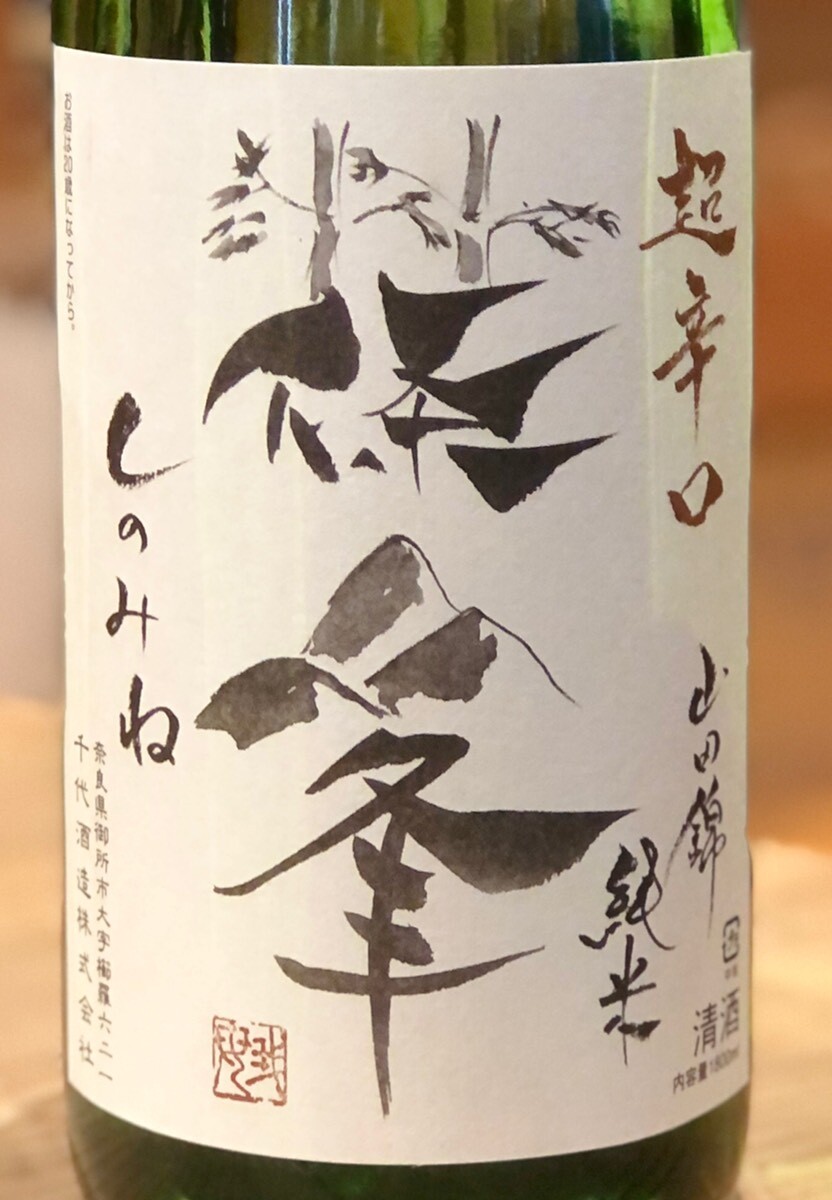 超辛口
山田錦
純米
篠峯
しのみね
お酒は20歳になってから。
奈良県御所市大字櫛羅六二一
千代酒造株式会社
清酒
内容量1800ml